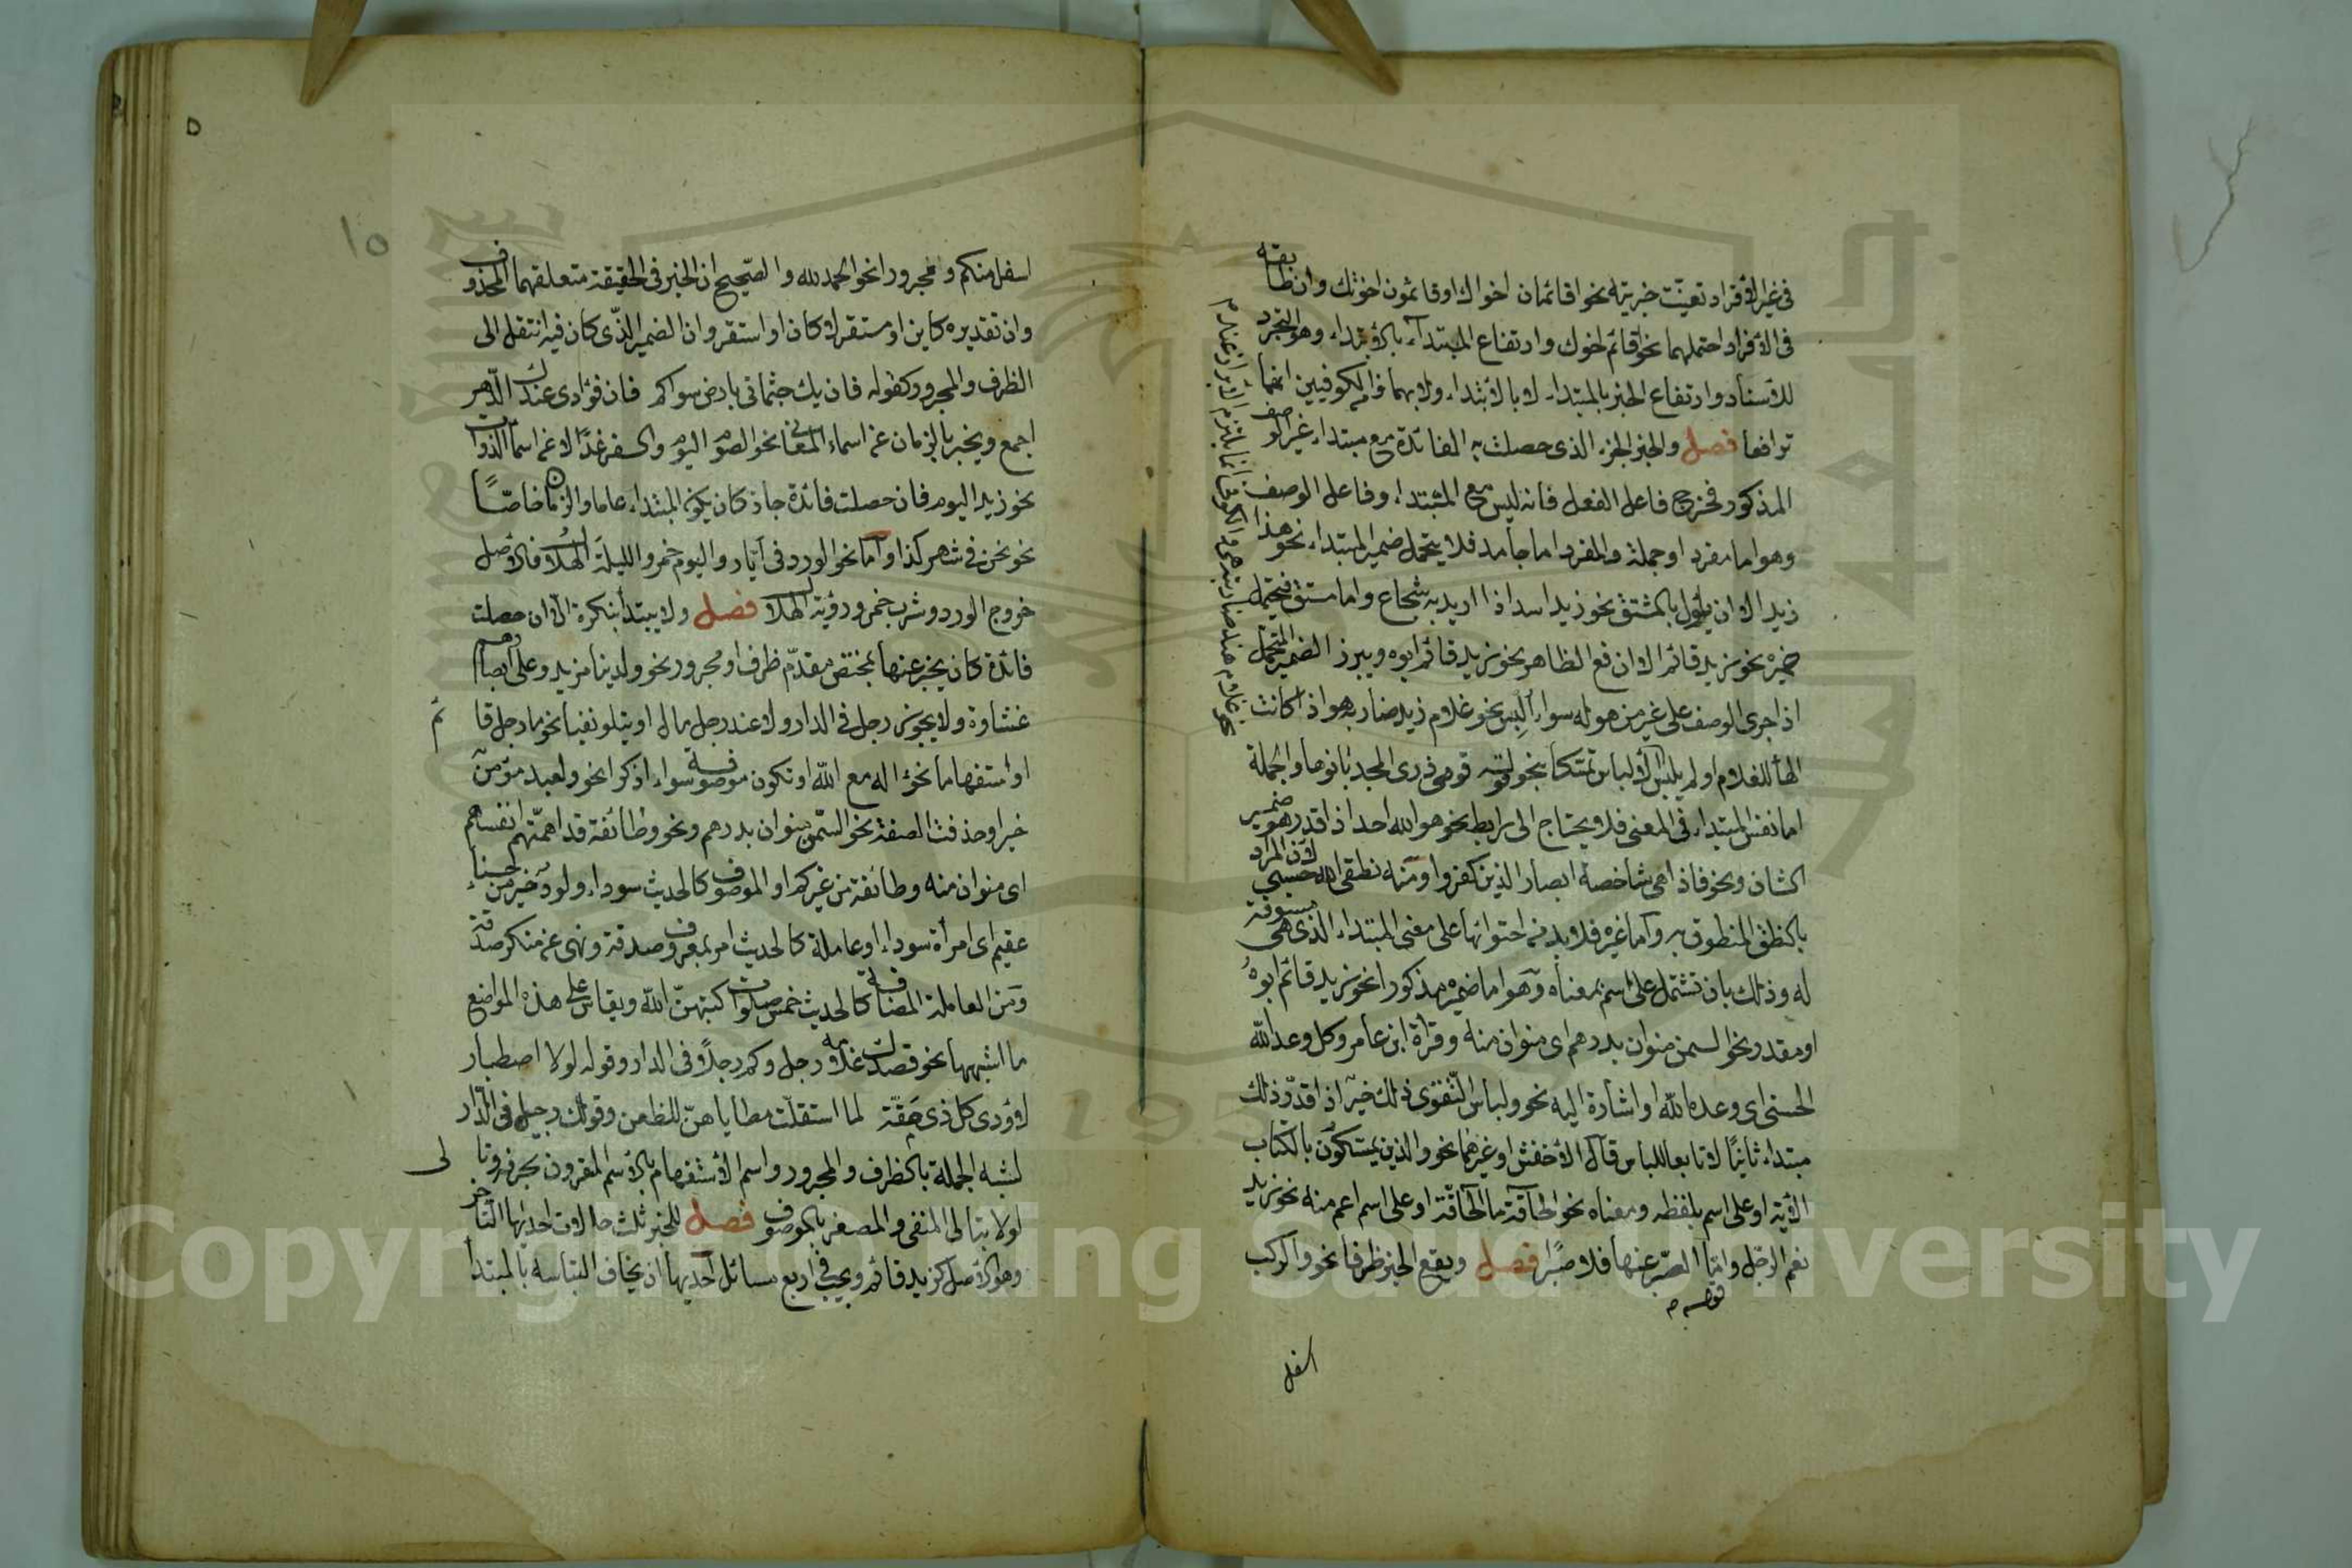 فى غير الأفراد تعيّنت خبريته نحو اقائمان اخواك او قائمون اخوتك وان طابقه
فى الأفراد احتملهما نحو اقائم اخوك وارتفاع المبتداء بالابتداء وهو التجرد
للأسناد وارتفاع الخبر بالمبتداء لا بالابتداء ولا بهما والكوفيين انهما
ترافعا فصل والخبر الجزء الذى حصلت به الفائدة مع مبتداء غير الوصف
المذكور فخرج فاعل الفعل فانه ليس مع المبتداء وفاعل الوصف
وهو اما مفرد او جملة والمفرد اما جامد فلا يتحمل ضمير المبتداء نحو هذا
زيد الا ان يأول بالمشتق نحو زيد اسد اذا اريد به شجاع واما مشتق فيتحمل
ضميره نحو زيد قائم الا ان رفع الظاهر نحو زيد قائم ابوه ويبرز الضمير المتحمل
اذا جرى الوصف على غير من هو له سواء الّبس نحو غلام زيد ضاربه هو اذا كانت
الهأ للغلام او لم يلبس الألباس تمسكا بنحو قوله قومى ذرى المجد بانوها والجملة
اما نفس المبتداء فى المعنى فلا يحتاج الى رابط نحو هو الله احد اذا قدر هو ضمير
الشان ونحو فاذا هى شاخصة ابصار الذين كفروا ومنه نطقى الله حسبى لان المراد
بالنطق المنطوق به واما غيره فلا بد من احتوائها على معنى المبتداء الذى هى مسوقة
له وذلك بان تشتمل على اسم بمعناه وهو اما ضميره مذكورا نحو زيد قائم ابوه
او مقدر نحو السمن منوان بدرهم اى منوان منه وقرأة ابن عامر وكل وعد الله
الحسنى اى وعده الله او اشارة اليه نحو ولباس التّقوى ذلك خير اذا قدّر ذلك
مبتداء ثانيًا لا تابعا للباس قال الأخفش او غيرهما نحو والذين يمسكون بالكتاب
الأية او على اسم بلفظه ومعناه نحو الحاقّة ما الحاقّة او على اسم اعم منه نحو زيد
نعم الرجل واما الصبر عنها فلا صبرا فصل ويقع الخبر ظرفا نحو والركب
قوله
اسفل
١٥
اسفل منكم ومجرورا نحو الحمد لله والصّحيح ان الخبر فى الحقيقة متعلقهما المحذوف
وان تقديره كاين او مستقر لا كان او استقر وان الضمير الّذى كان فيه انتقل الى
الظرف والمجرور كقوله فان يك جثمانى بارض سواكم فان فؤادى عندك الدّهر
اجمع ويخبر بالزمان عن اسماء المعانى نحو الصوم اليوم والسفر غدًا لا عن اسما الذوات
نحو زيد اليوم فان حصلت فائدة جاز كان يكون المبتداء عاما والزمان خاصًّا
نحو نحن فى شهر كذا واما نحو الورد فى أيّار واليوم خمر والليلة الهلال فالأصل
خروج الورد وشرب خمر ورؤية الهلال فصل ولا يبتدأ بنكرة الا ان حصلت
فائدة كان يخبر عنها بمختص مقدّم ظرف او مجرور نحو ولدينا مزيد وعلى ابصارهم
غشاوة ولا يجوز رجل فى الدار ولا عند رجل مال او يتلو نفيا نحو ما رجل قائم
او استفهاما نحو ءاله مع الله او تكون موصوفة سواء اذكرا نحو ولعبد مؤمن
خير او حذفت الصفة نحو السّمن منوان بدرهم ونحو وطائفة قد اهمّتهم انفسهم
اى منوان منه وطائفة من غيركم او الموصوف كالحديث سوداء ولود خير من حسناء
عقيم اى امرأة سوداء او عاملة كالحديث امر بمعروف صدقة ونهى عن منكر صدقة
ومن العاملة المضافة كالحديث خمس صلوات كتبهنّ الله ويقاس على هذه المواضع
ما اشبهها نحو قصدك غلامه رجل وكم رجلاً فى الدار وقوله لولا اصطبار
لاودى كل ذى مقة لما استقلّت مطاياهنّ للظعن وقولك رجيل فى الدّار
لشبه الجملة بالظرف والمجرور واسم الأستفهام بالأسم المقرون بحرفه وتالى
لولا بتالى المنفى والمصغر بالموصوف فصل للخبر ثلث حالات احديها التأخر
وهو الأصل كزيد قائم ويجب فى اربع مسائل احديها ان يخاف التباسه بالمبتدأ
Copyright © King Saud University
195